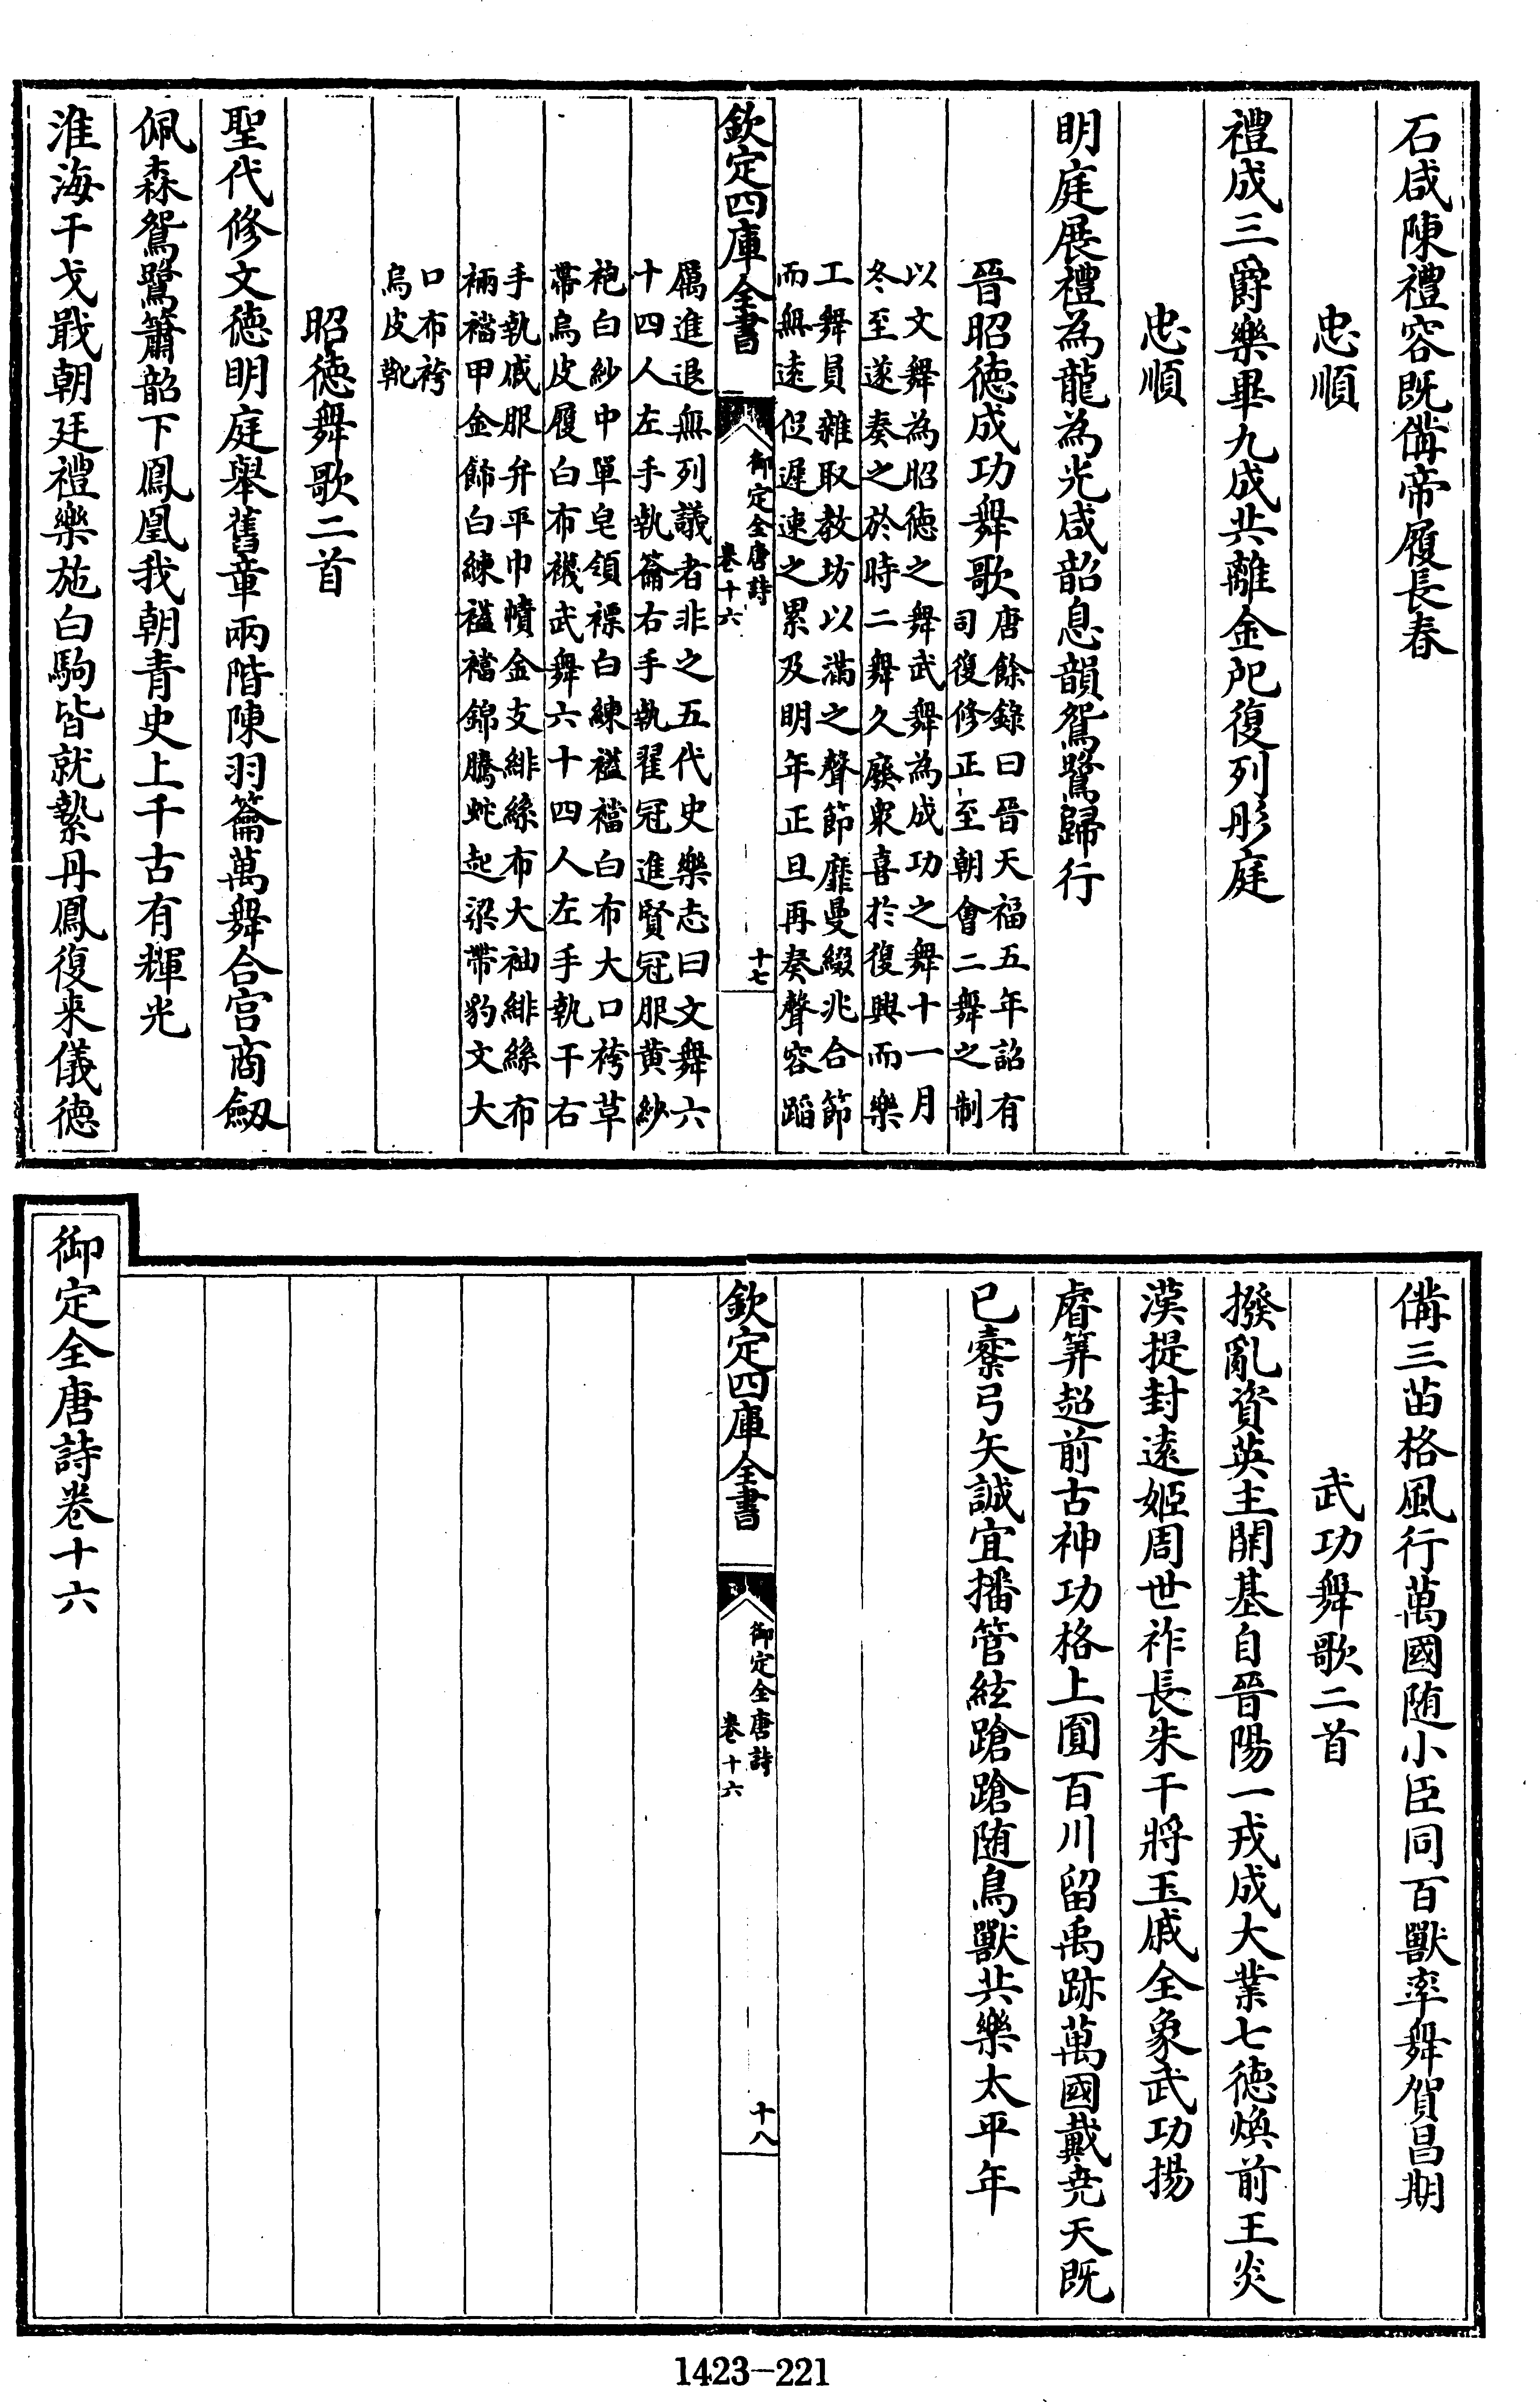 石咸陳禮容既備帝履長春
忠順
禮成三爵樂畢九成共離金戺復列彤庭
忠順
明庭展禮為龍為光咸韶息韻鴛鷺歸行
晉昭德成功舞歌唐餘錄曰晉天福五年詔有
司復修正至朝會二舞之制
以文舞為昭德之舞武舞為成功之舞十一月
冬至遂奏之於時二舞久廢衆喜於復興而樂
工舞員雜取教坊以滿之聲節靡曼綴兆合節
而無遠促遲速之累及明年正旦再奏聲容蹈
欽定四庫全書
御定全唐詩
卷十六
十七
厲進退無列議者非之五代史樂志曰文舞六
十四人左手執籥右手執翟冠進賢冠服黄紗
袍白紗中單皂領褾白練䙆襠白布大口袴草
帶烏皮履白布襪武舞六十四人左手執干右
手執戚服弁平巾幘金支緋絲布大袖緋絲布
裲襠甲金飾白練䙆襠錦騰蛇起梁帶豹文大
口布袴
烏皮靴
昭德舞歌二首
聖代修文德明庭舉舊章兩階陳羽籥萬舞合宮商劒
佩森鴛鷺簫韶下鳳凰我朝青史上千古有輝光
淮海干戈戢朝廷禮樂施白駒皆就縶丹鳳復来儀德
備三苗格風行萬國随小臣同百獸率舞賀昌期
武功舞歌二首
撥亂資英主開基自晉陽一戎成大業七德煥前王炎
漢提封遠姬周世祚長朱干將玉戚全象武功揚
睿筭超前古神功格上圓百川留禹跡萬國戴堯天既
已櫜弓矢誠宜播管絃蹌蹌随鳥獸共樂太平年
欽定四庫全書
御定全唐詩
卷十六
十八
御定全唐詩卷十六
1423-221